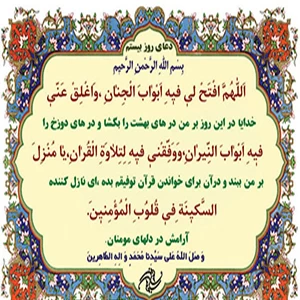 دعای روز بیستم
بِسْمِ اللَّهِ الرَّحْمنِ الرَّحیم
اَللّهُمَّ افْتَحْ لی فیهِ اَبْوابَ الْجِنانِ ،وَاَغْلِقْ عَنّی
خدایا در این روز بر من در های بهشت را بگشا و در های دوزخ را
فیهِ اَبْوابَ النّیرانِ،وَوَفِّقْنی فیهِ لِتِلاوَةِ الْقُرانِ،یا مُنْزِلَ
بر من ببند و درآن برای خواندن قرآن توفیقم بده ،ای نازل کننده
السَّکینَةِ فی قُلُوبِ الْمُؤْمِنینَ.
آرامش در دلهای مومنان.
وَ صَلَ اللهُ عَلی سَیِّدِنا مُحَمَّدٍ وَ الِهِ الطّاهِرینَ